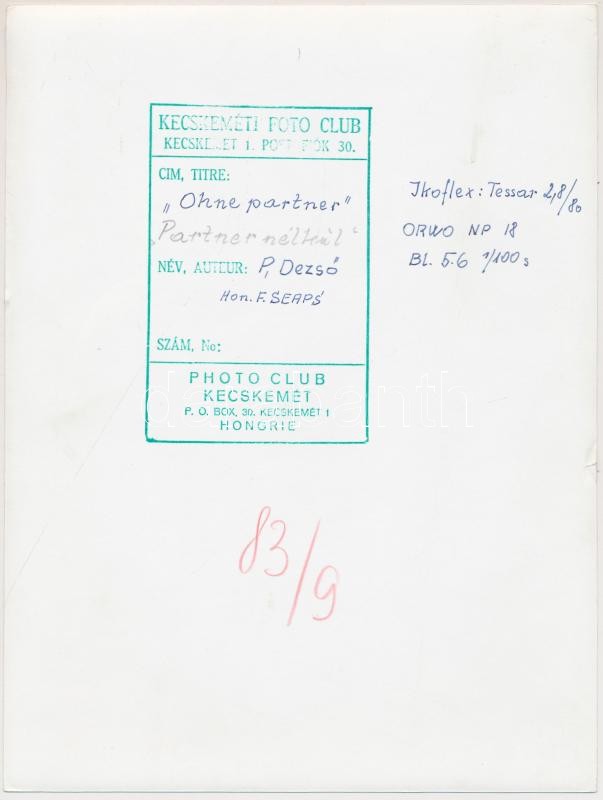 KECSKEMÉTI FOTO CLUB
KECSKEMÉT 1. POST FIÓK 30.
CIM, TITRE:
„Ohne partner"
„Partner nélkül"
NÉV, AUTEUR: P, Dezső
Hon. F. SEAPS
SZÁM, No:
PHOTO CLUB
KECSKEMÉT
P. O. BOX, 30. KECSKEMÉT 1
HONGRIE
Ikoflex: Tessar 2,8/80
ORWO NP 18
Bl. 5.6 1/100 s
83/9